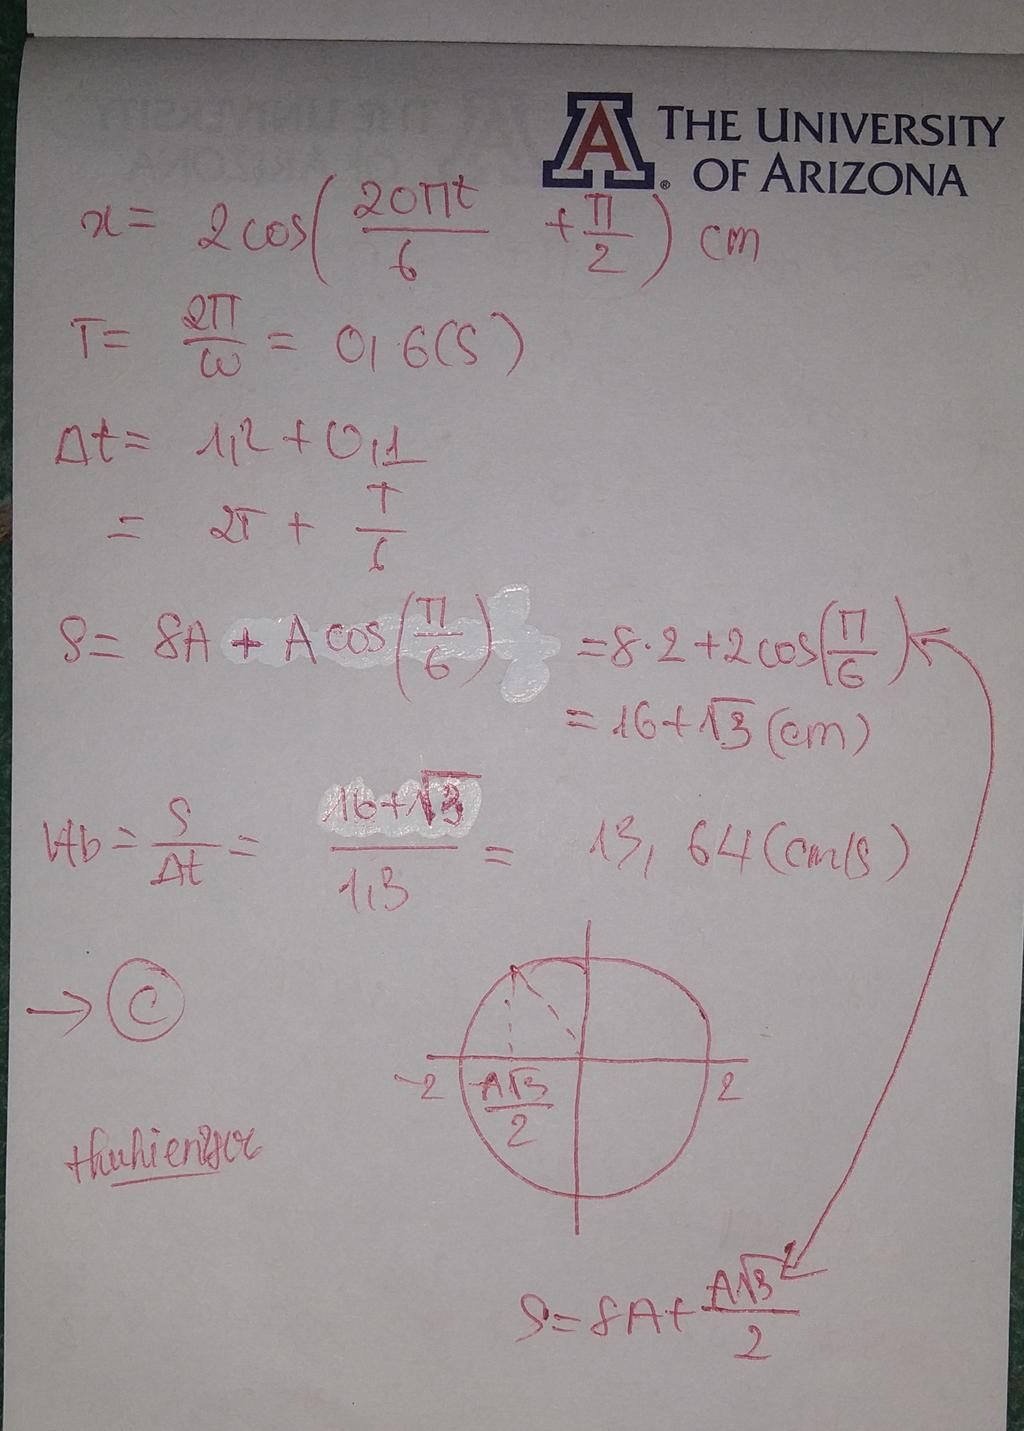 THE UNIVERSITY
OF ARIZONA
x = 2cos(20πt/6 + π/2) cm
T = 2π/ω = 0,6(s)
Δt = 1,2 + 0,1
= 2T + T/6
S = 8A + A cos(π/6) = 8.2 + 2cos(π/6)
= 16 + √3 (cm)
Vtb = S/Δt = 16+√3/1,3 = 13,64 (cm/s)
→ C
-2 -A√3/2 2
S = 8A + A√3/2